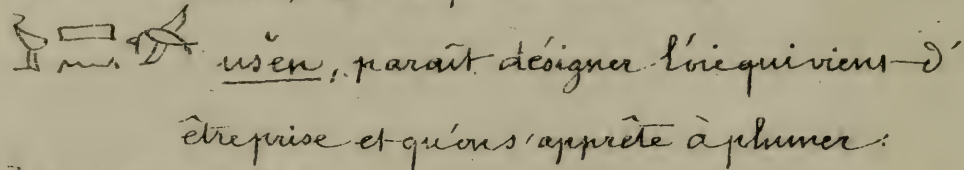 ušen, paraît désigner l'oie qui viens d'
être prise et qu'on s'apprête à plumer: